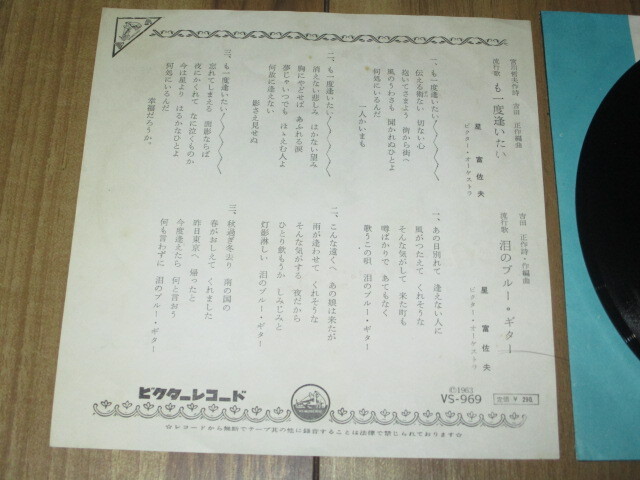 宮川哲夫作詩 吉田 正作編曲
流行歌 も一度逢いたい
星 富佐夫
ビクター・オーケストラ
一、も一度逢いたい
伝える術ない 切ない心
抱いてさまよう 街から街へ
風のうわさも 聞かれぬひとよ
何処にいるんだ
一人かいまも
二、も一度逢いたい
消えない悲しみ はかない望み
胸にやどせば あふれる涙
夢じゃいつでも ほゝえむ人よ
何故に逢えない
影さえ見せぬ
三、も一度逢いたい
忘れてしまえと 面影ならば
夜にかくれて なに泣くものか
今は星より はるかなひとよ
何処にいるんだ
幸福だろうか、
吉田 正作詩・作編曲
流行歌 泪のブルー・ギター
星 富佐夫
ビクター・オーケストラ
一、あの日別れて 逢えない人に
風がつたえて くれそうな
そんな気がして 来た町も
噂ばかりで あてもなく
歌うこの唄 泪のブルー・ギター
二、こんな遠くへ あの娘は来たが
雨が逢わせて くれそうな
そんな気がする 夜だから
ひとり飲もうか しみじみと
灯影淋しい 泪のブルー・ギター
三、秋過ぎ冬去り 南の国の
春がおしえて くれました
昨日東京へ 帰ったと
今度逢えたら 何と言おう
何も言わずに 泪のブルー・ギター
ビクターレコード
Ⓟ1963
VS-969
定価 ¥ 290
☆レコードから無断でテープ其の他に録音することは法律で禁じられております☆